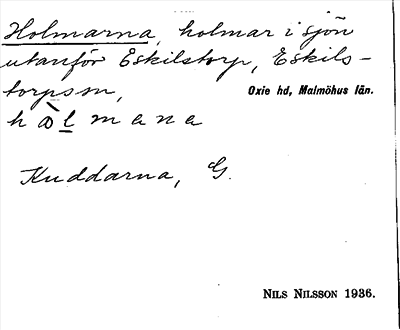 Holmarna, holmar i sjön
utanför Eskilstorp, Eskils-
torpssn,
Oxie hd, Malmöhus län.
hòlmana
Kuddarna, G.
NILS NILSSON 1936.